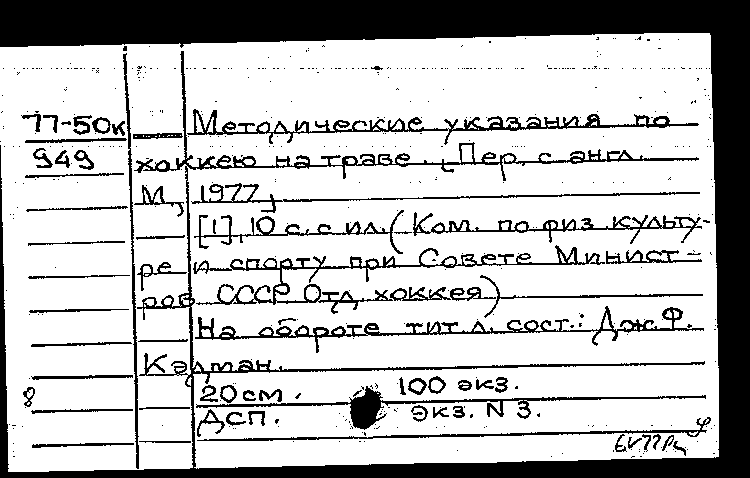 77-50к Методические указания по
949 хоккею на траве. [Пер. с англ.
М., 1977]
[1], 10 с. с ил. (Ком. по физ. культу-
ре и спорту при Совете Минист-
ров СССР Отд. хоккея)
На обороте тит. л. сост.: Дж. Ф.
Кэдман.
20 см. 100 экз.
8 ДСП. экз. N 3.